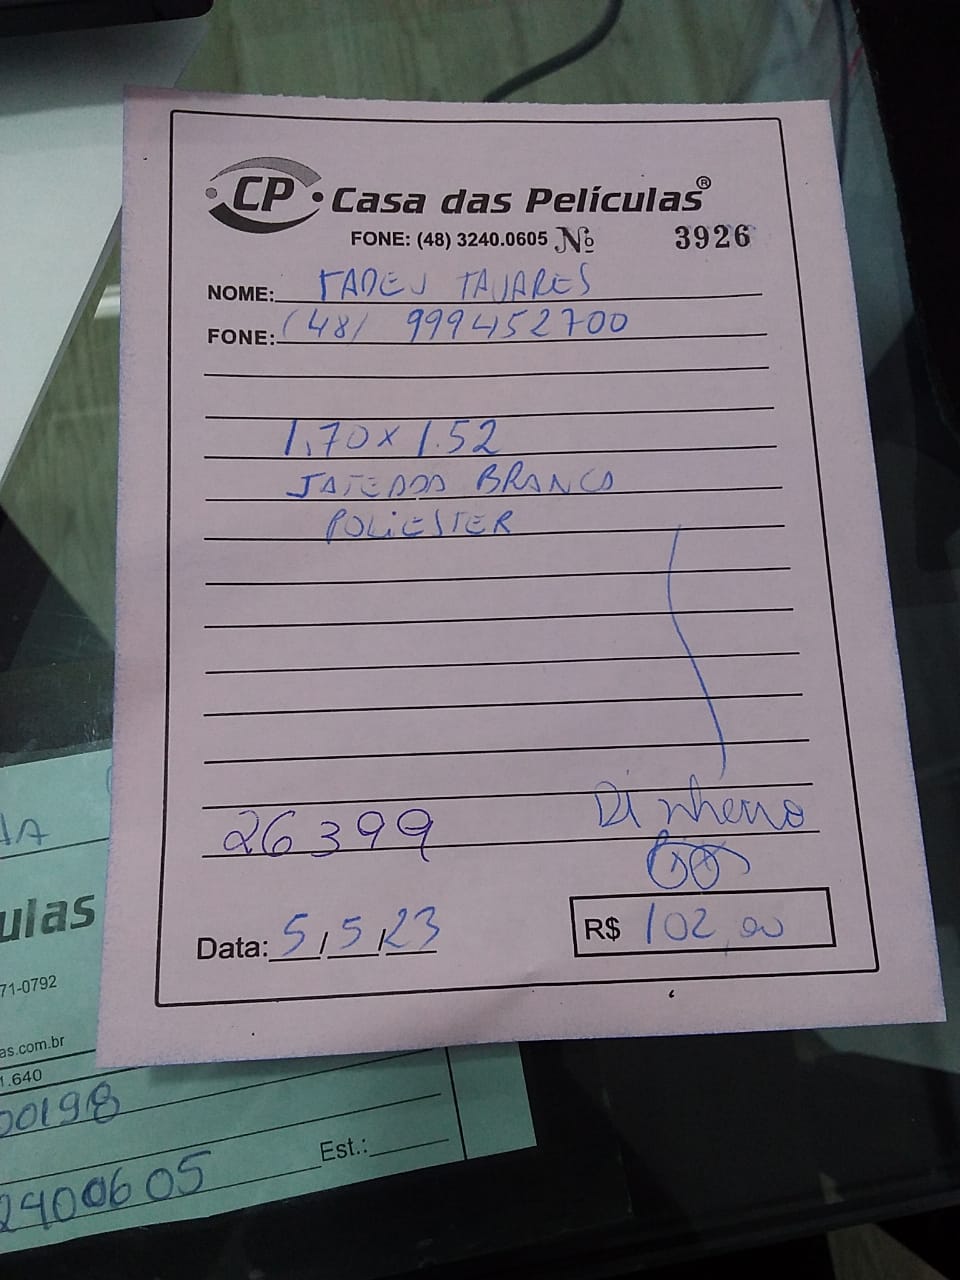 CP Casa das Películas®
FONE: (48) 3240.0605 Nº 3926
NOME: TADEU TAVARES
FONE: (48) 999452700
1,70 x 1.52
JATEADO BRANCO
POLIESTER
Dinheiro
26399
Data: 5/5/23
R$ 102,00
ulas
71-0792
as.com.br
1.640
00198
Est.:
2400605